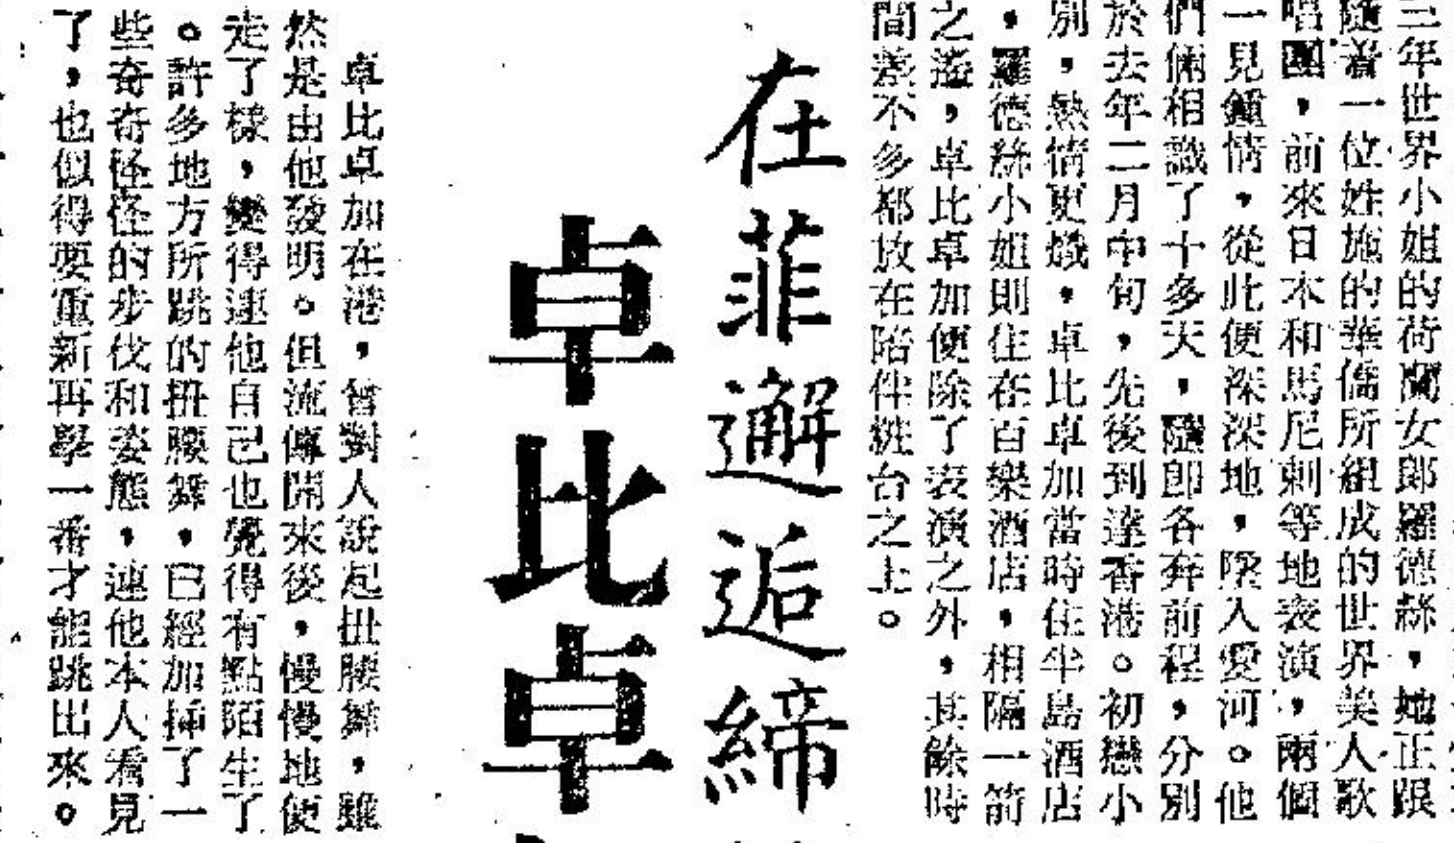 三年世界小姐的荷蘭女郎羅德絲，她正跟
隨着一位姓施的華僑所組成的世界美人歌
唱團，前來日本和馬尼剌等地表演，兩個
一見鍾情，從此便深深地，墜入愛河。他
們倆相識了十多天，隨即各奔前程，分別
於去年二月中旬，先後到達香港。初戀小
別，熱情更熾，卓比卓加當時住半島酒店
，羅德絲小姐則住在百樂酒店，相隔一箭
之遙，卓比卓加便除了表演之外，其餘時
間差不多都放在陪伴妝台之上。
在菲邂逅締
卓比卓
卓比卓加在港，曾對人說起扭腰舞，雖
然是由他發明。但流傳開來後，慢慢地便
走了樣，變得連他自己也覺得有點陌生了
。許多地方所跳的扭腰舞，已經加插了一
些奇奇怪怪的步伐和姿態，連他本人看見
了，也似得要重新再學一番才能跳出來。